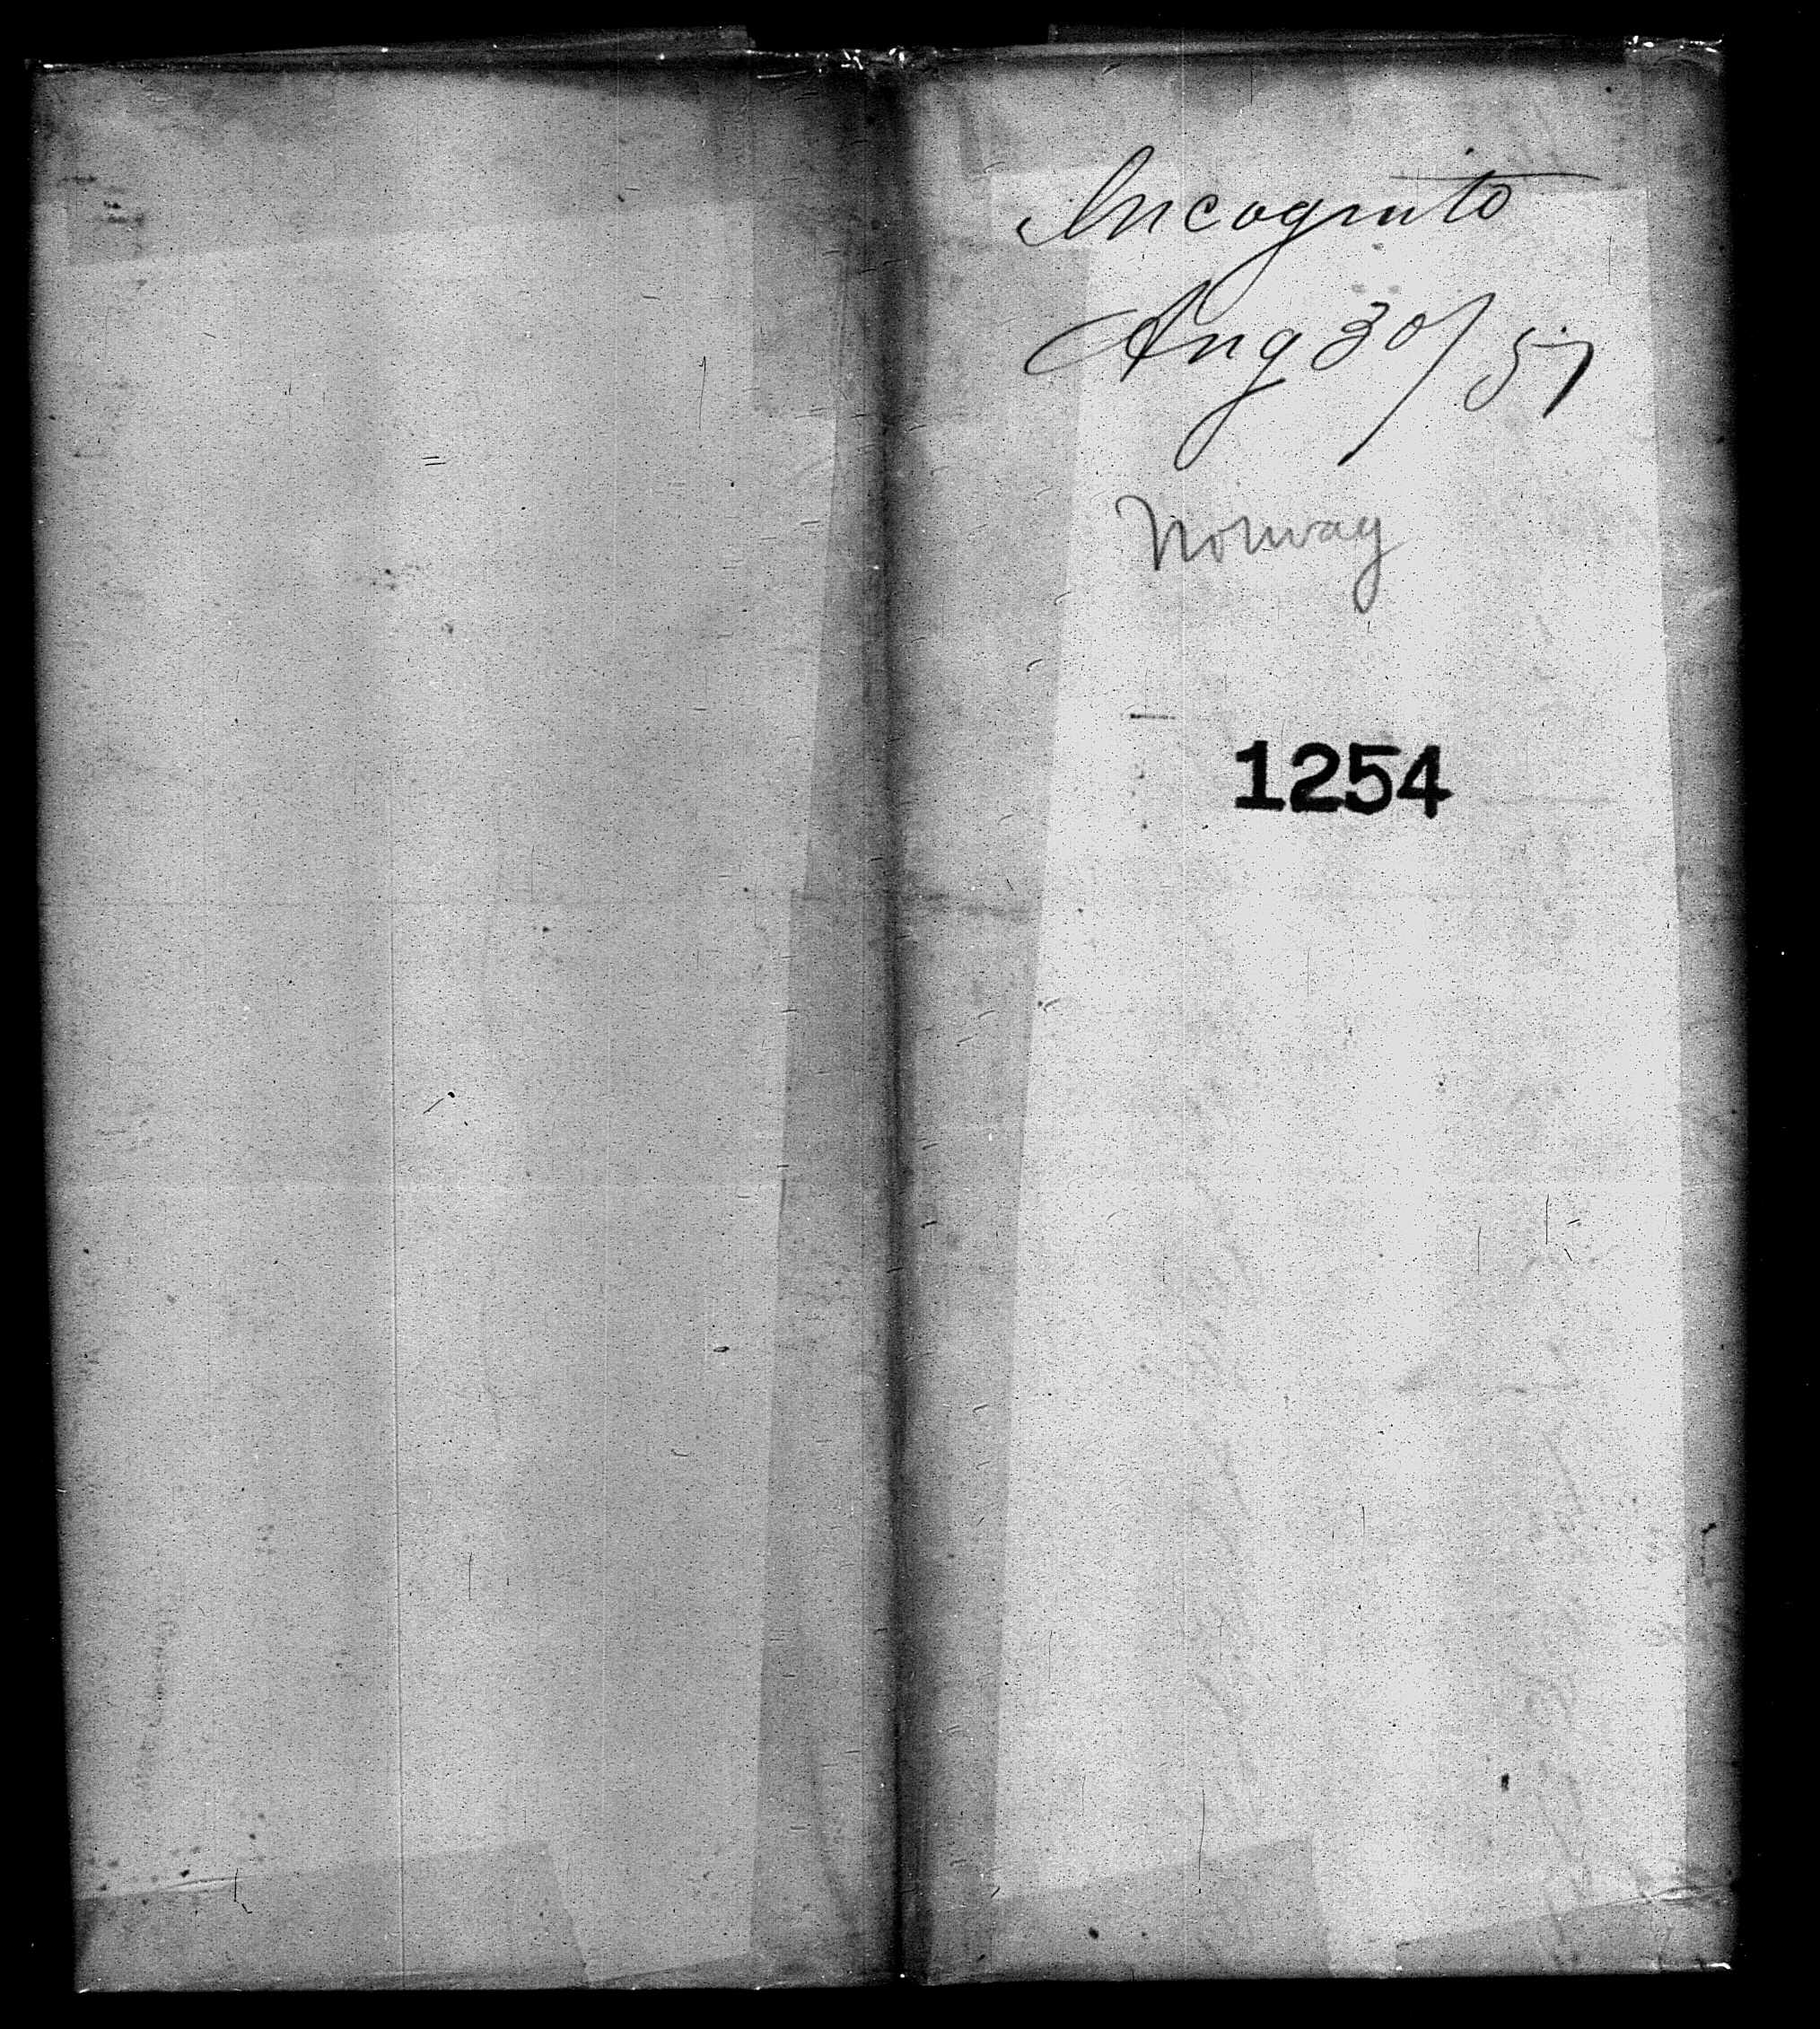 Incognito
Aug 30/57
Norway
1254